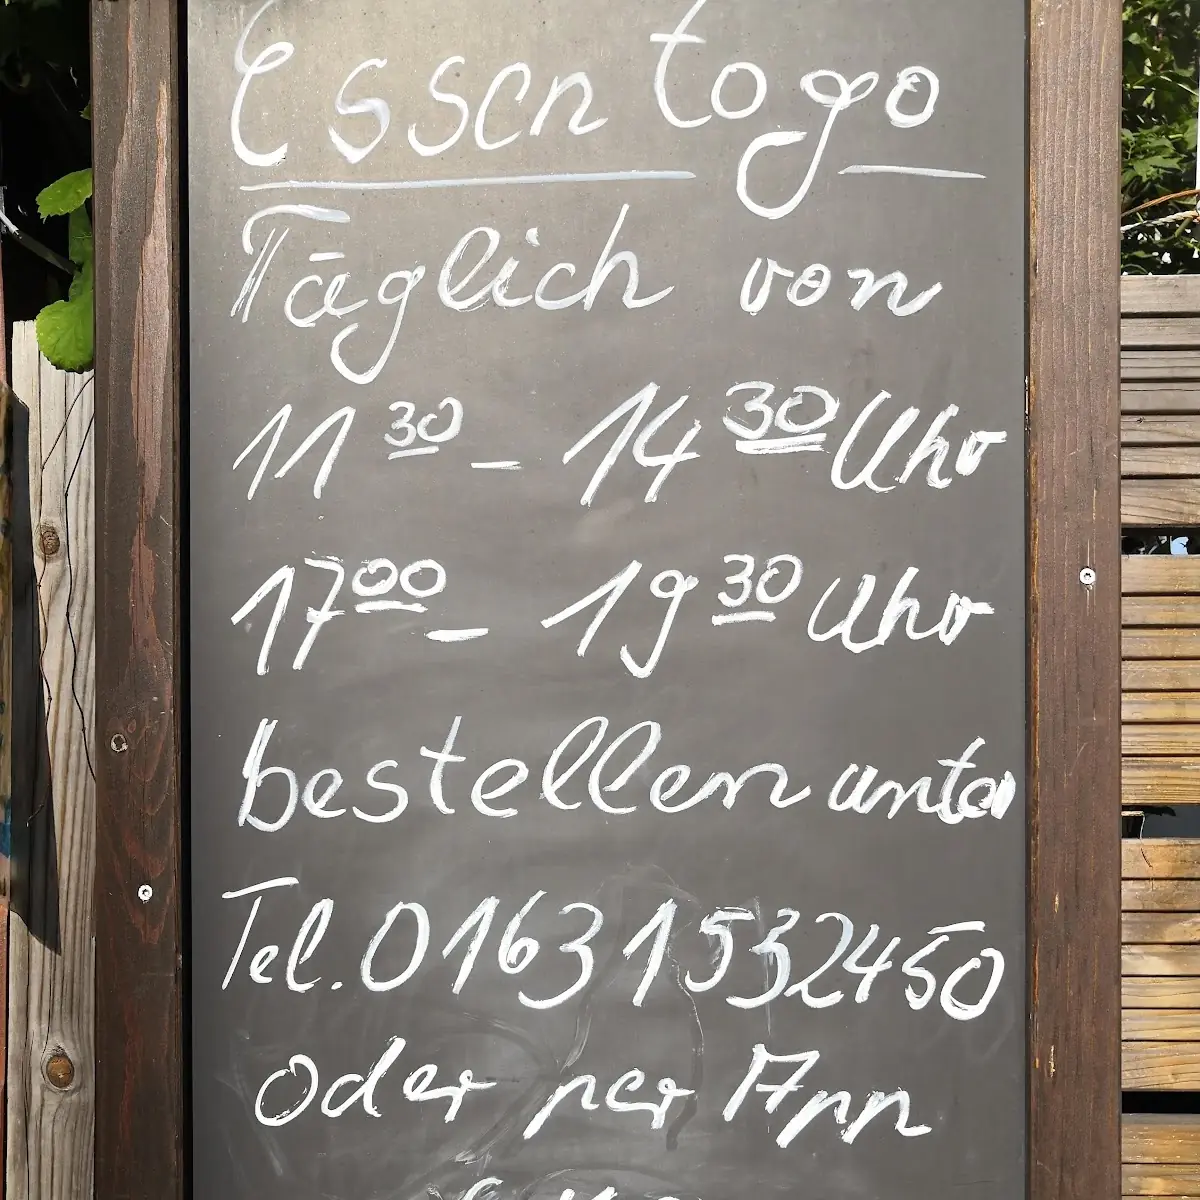 Essen to go
Täglich von
11 30 - 14 30 Uhr
17 00 - 19 30 Uhr
bestellen unter
Tel. 0163 1532450
oder per App